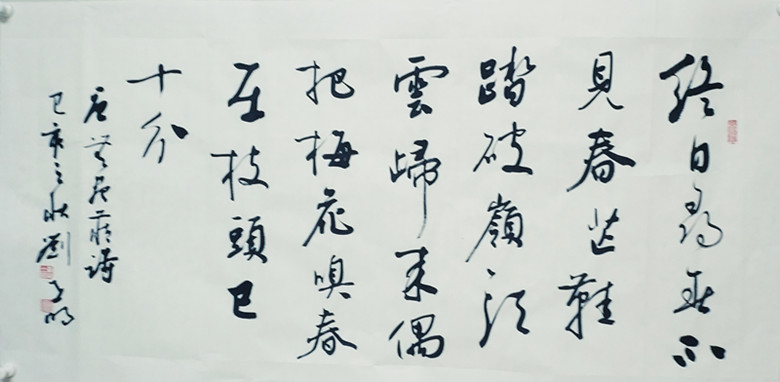 終日尋春不
見春芒鞋
踏破嶺頭
雲歸來偶
把梅花嗅春
在枝頭已
十分
唐無尽藏詩
己亥之秋劉